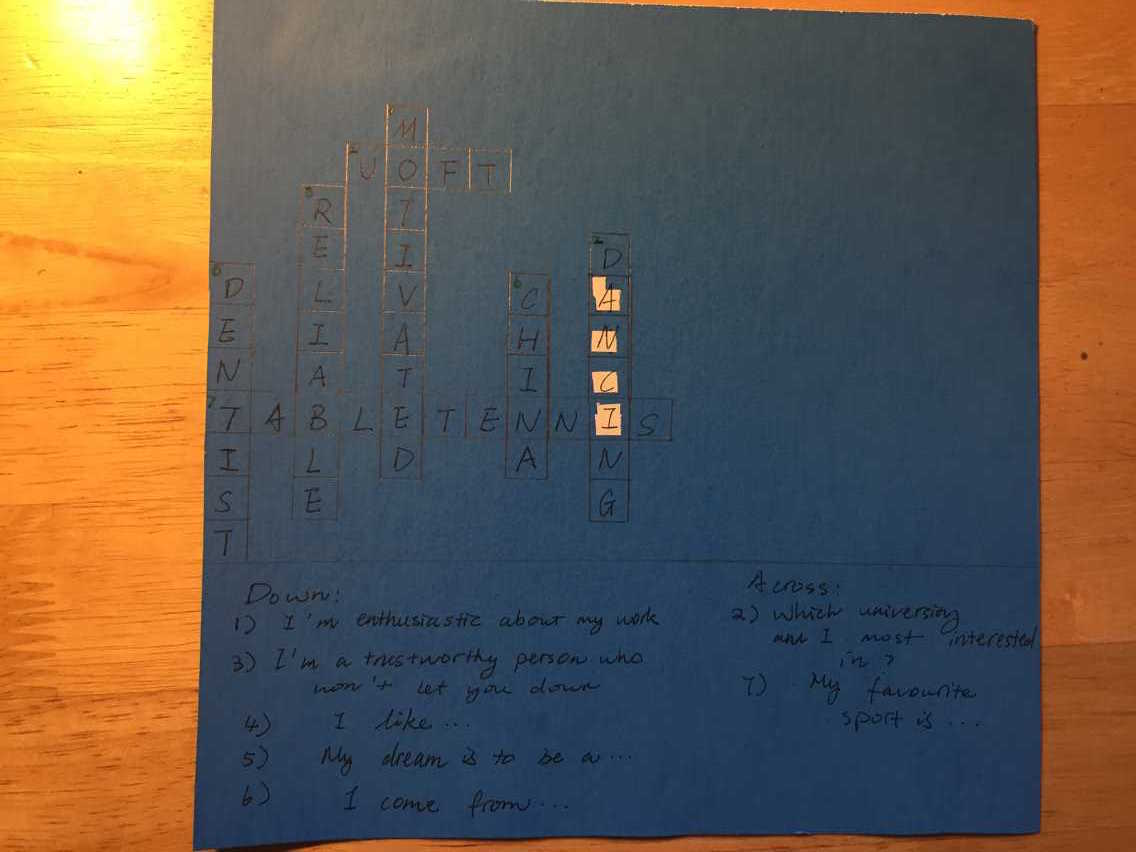 MOTIVATED
UOFT
RELIABLE
DANCING
DENTIST
CHINA
TABLETENNIS
Down:
1) I'm enthusiastic about my work
3) I'm a trustworthy person who
won't let you down
4) I like ...
5) My dream is to be a ...
6) I come from ...
Across:
2) Which university
am I most interested
in ?
7) My favourite
sport is ...